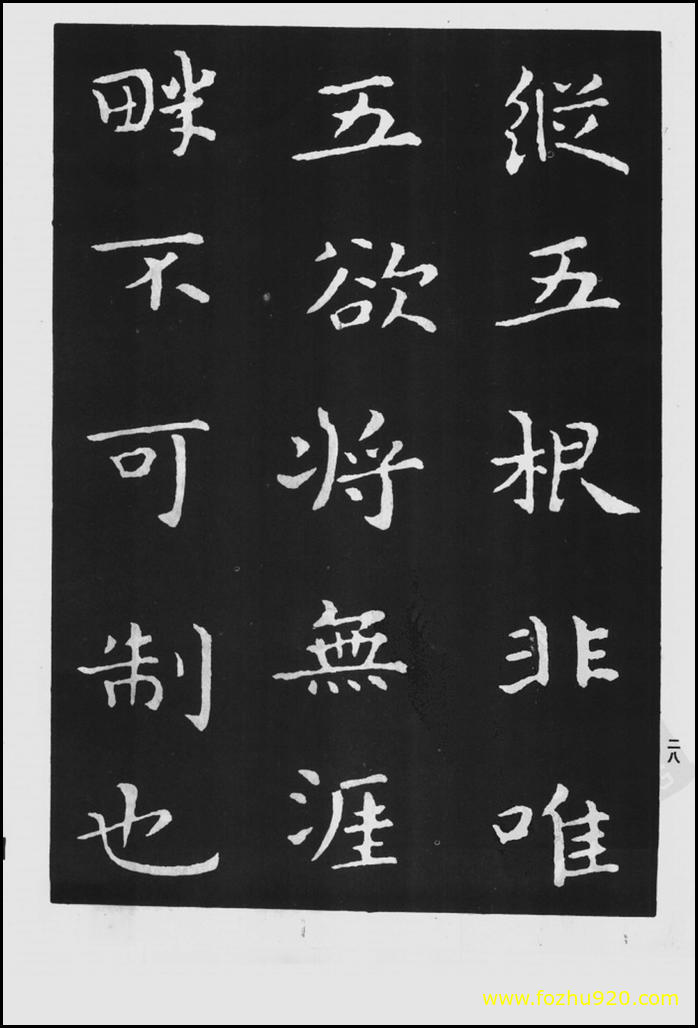 縱五根非唯
五欲將無涯
畔不可制也
二八
www.fozhu920.com